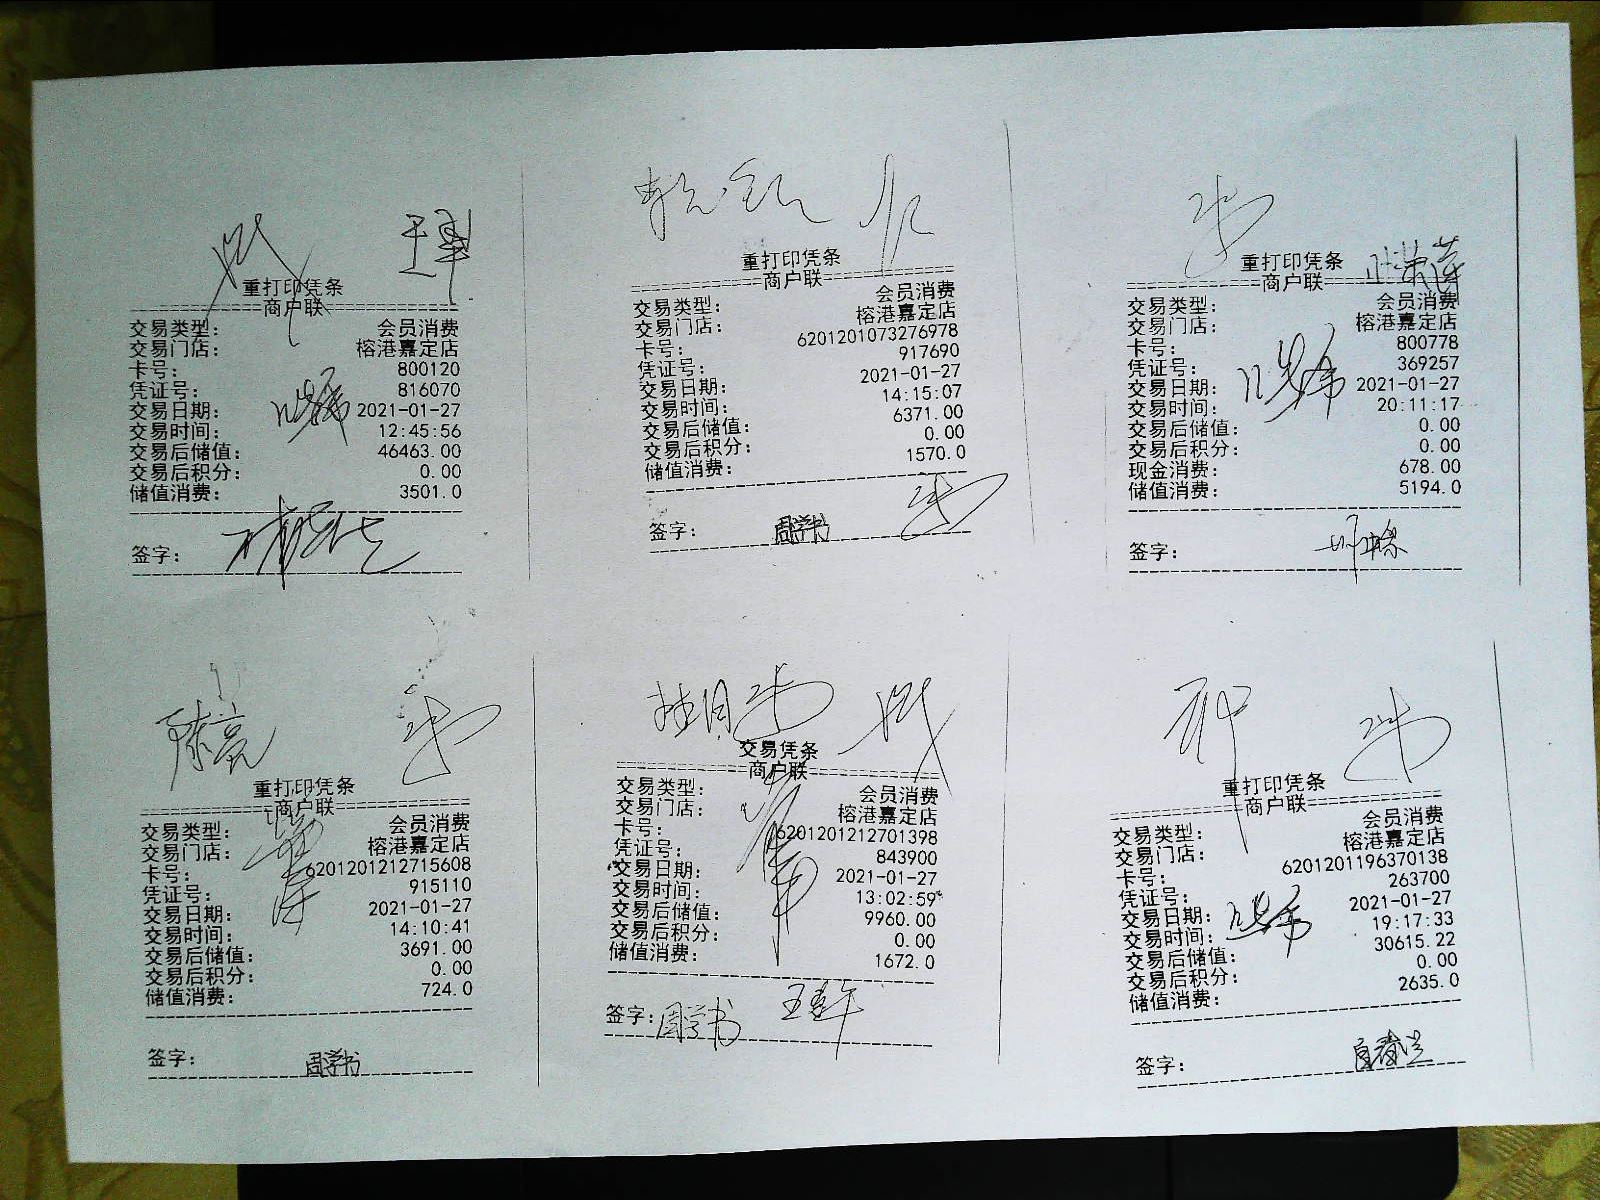 重打印凭条
商户联
交易类型： 会员消费
交易门店： 榕港嘉定店
卡号： 800120
凭证号： 816070
交易日期： 2021-01-27
交易时间： 12:45:56
交易后储值： 46463.00
交易后积分： 0.00
储值消费： 3501.0
签字：
重打印凭条
商户联
交易类型： 会员消费
交易门店： 榕港嘉定店
卡号： 6201201073276978
凭证号： 917690
交易日期： 2021-01-27
交易时间： 14:15:07
交易后储值： 6371.00
交易后积分： 0.00
储值消费： 1570.0
签字： 周学书
重打印凭条
商户联
交易类型： 会员消费
交易门店： 榕港嘉定店
卡号： 800778
凭证号： 369257
交易日期： 2021-01-27
交易时间： 20:11:17
交易后储值： 0.00
交易后积分： 0.00
现金消费： 678.00
储值消费： 5194.0
签字：
重打印凭条
商户联
交易类型： 会员消费
交易门店： 榕港嘉定店
卡号： 6201201212715608
凭证号： 915110
交易日期： 2021-01-27
交易时间： 14:10:41
交易后储值： 3691.00
交易后积分： 0.00
储值消费： 724.0
签字： 周学书
交易凭条
商户联
交易类型： 会员消费
交易门店： 榕港嘉定店
卡号： 6201201212701398
凭证号： 843900
交易日期： 2021-01-27
交易时间： 13:02:59
交易后储值： 9960.00
交易后积分： 0.00
储值消费： 1672.0
签字： 周学书
重打印凭条
商户联
交易类型： 会员消费
交易门店： 榕港嘉定店
卡号： 6201201196370138
凭证号： 263700
交易日期： 2021-01-27
交易时间： 19:17:33
交易后储值： 30615.22
交易后积分： 0.00
储值消费： 2635.0
签字：